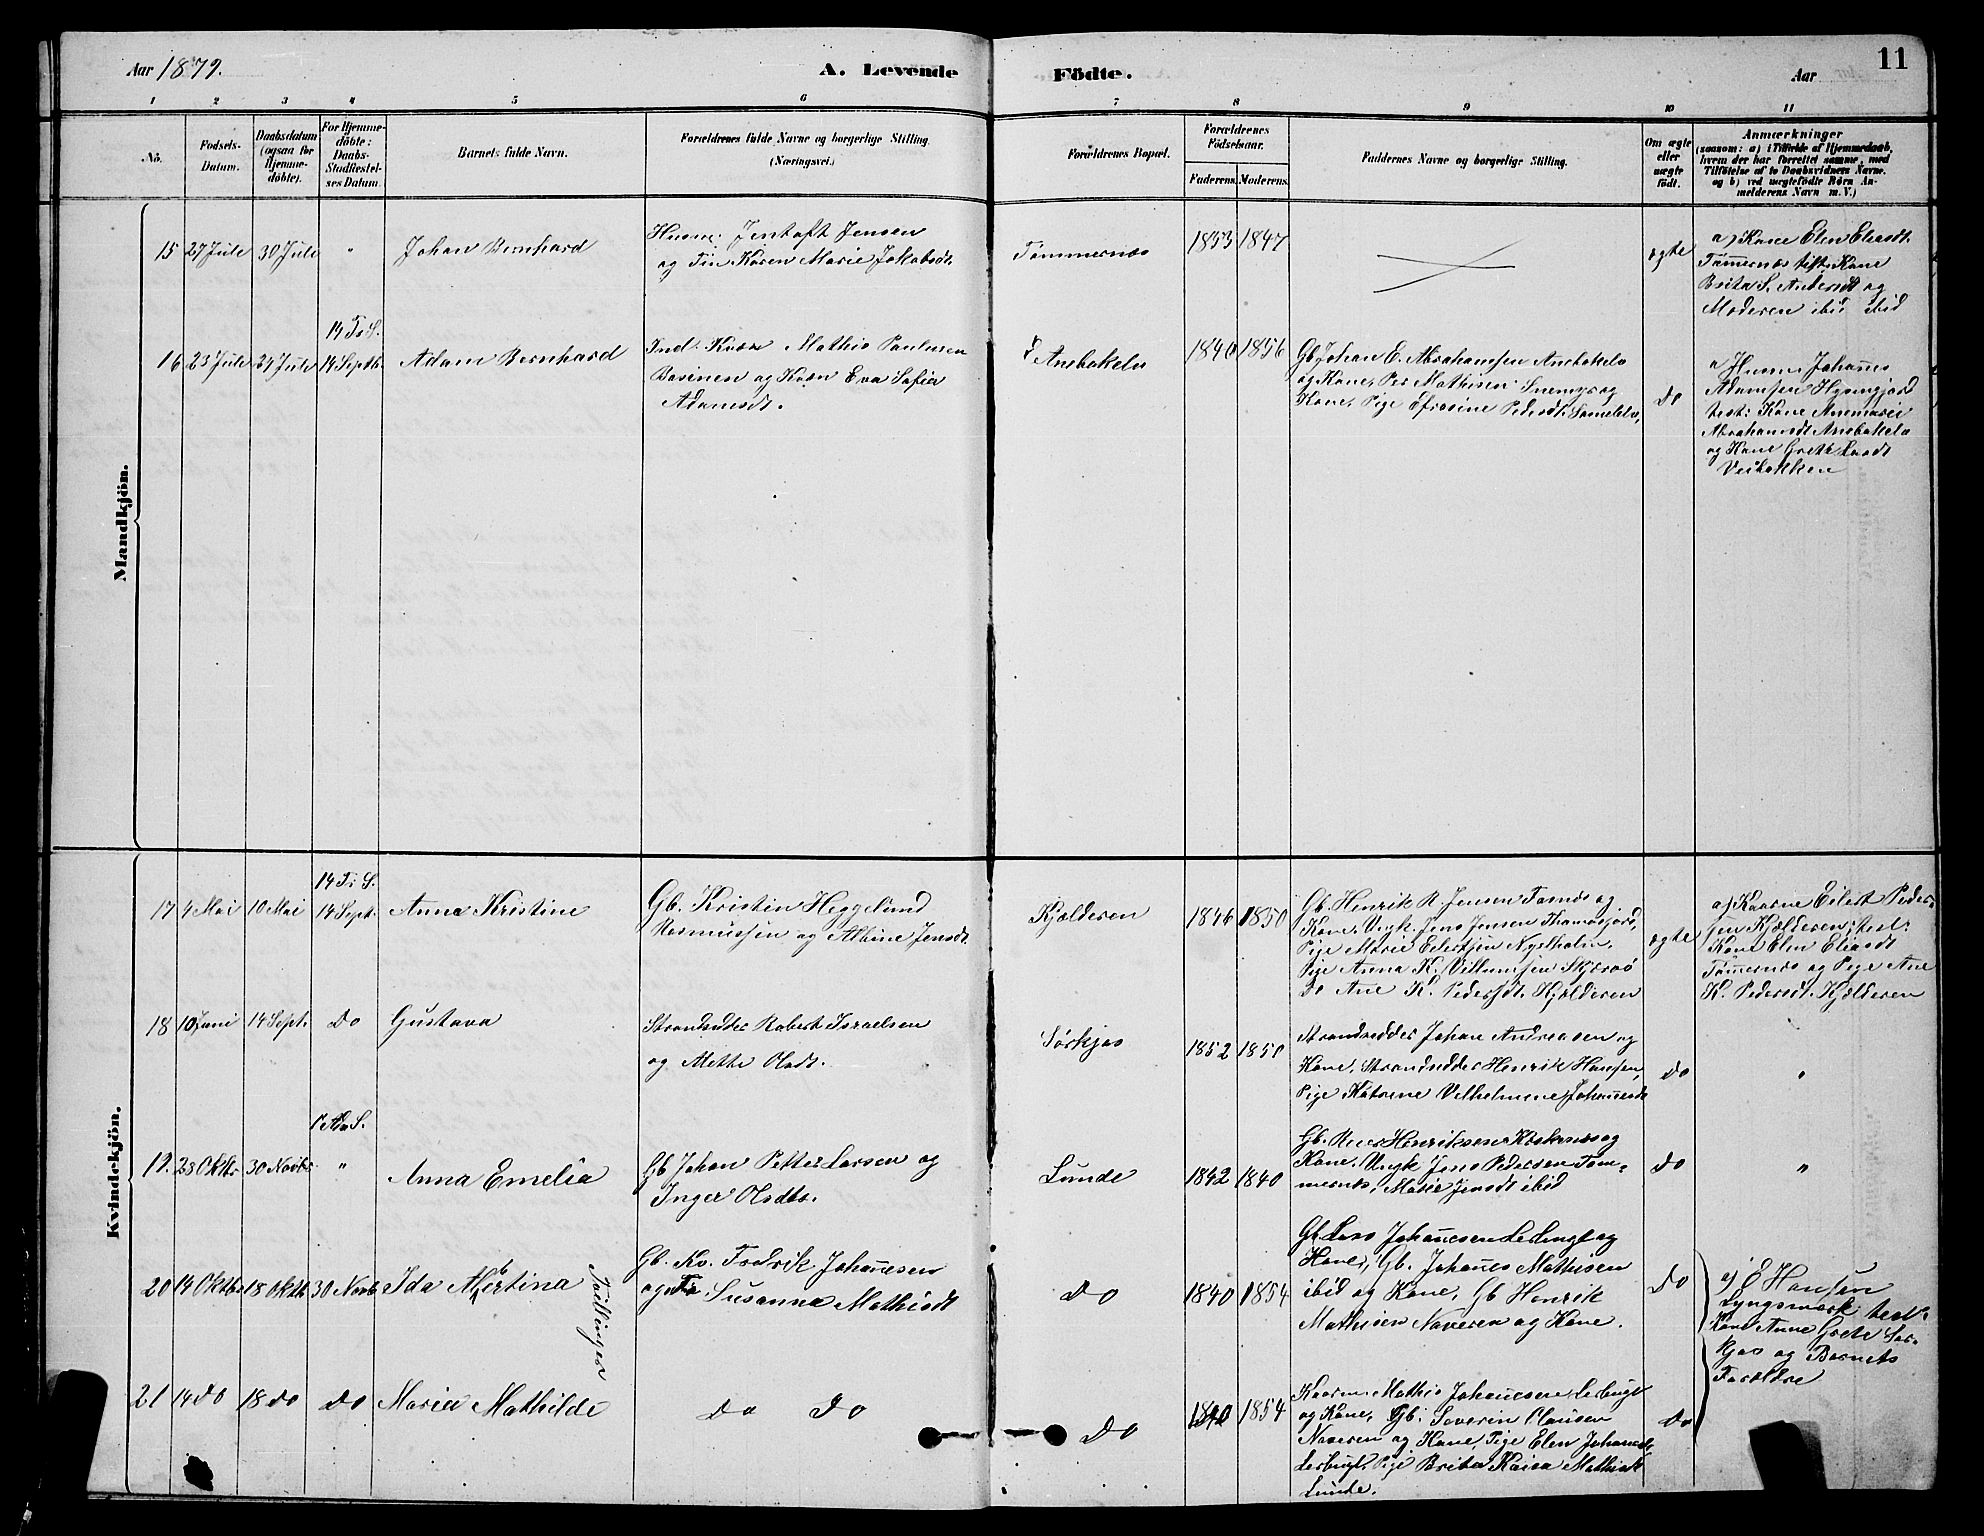 Aar 1879.
A. Levende
Födte.
Aar
11
1 2 3 4 5 6 7 8 9 10 11
No.
Fodsels-Datum.
Daabsdatum (ogsaa for Hjemme-döbte).
For Hjemme-döbte: Daabs-Stadfæstel-ses Datum.
Barnets fulde Navn.
Forældrenes fulde Navne og borgerlige Stilling. (Næringsvei.)
Forældrenes Bopæl.
Forældrenes Födselsaar.
Faderens. Moderens.
Faddernes Navne og borgerlige Stilling.
Om ægte eller uægte födt.
Anmærkninger
(saasom: a) i Tilfælde af Hjemmedaab, hvem der har forrettet samme, med Tilföielse af to Daabsvidners Navne. og b) ved uægtefödte Börn An-melderens Navn m. V.)
Mandkjön.
15 27 Jule 30 Jule " Johan Bernhard
Husm: Jentoft Jensen
og Fin Karen Marie Jakobsdt.
Tømmernæs 1853 1847
ægte
a) Kone Elen Eliasdt.
Tømernæs test: Kone
Brita S. Andersdt og
Moderen ibid ibid
14 Ts S.
16 23 Jule 24 Jule 14 Septb. Adam Bernhard
Ind. Kvæn Mathis Paulusen
Basinen og Kvæn Eva Sofia
Adamsdt.
Ansbakela 1840 1856
Gb. Johan E. Abrahamsen Ansbakela
og Kone, Per Mathisen Snemyr og
Kone, Pige Efrosine Pedersdt.
Do
a Husm. Johanes
Adamsen
test: Kone Anemarei
Abrahamsdt Ansbakela
og Kone Grethe Larsdt
Veibakken
Kvindekjön.
14 Ts S.
17 4 Mai 10 Mai 14 Sept. Anna Kristine
Gb. Kristin Heggelund
Rasmussen og Albine Jensdt.
Kjelderen 1846 1850
Gb. Henrik R. Jensen og
Kone, Ungk. Jens Jensen Thamasjord,
Pige Marie Eilertsen Nyelholm,
Pige Anna K. Villumsen Skjærvö
Do Ane K. Pedersdt. Kjelderen
ægte
a) Kaarne Eilert Peder-
sen Kjælderen, test:
Kone Elen Eliasdt
Tømernæs og Pige Ane
K. Pedersdt. Kjælderen
18 10 Juni 14 Sept. Do Gustava
Strandsidder Robert Israelsen
og Mette Olsdt.
Sørkjos 1852 1850
Strandsidder Johan Andreasen og
Kone, Strandsidder Henrik Hansen,
Pige Katrine Vilhelmine Johannesdt
Do "
1 Adv S.
19. 23 Oktb. 30 Novbr " Anna Emelia
Gb Johan Petter Larsen og
Inger Olsdtr.
Lunde 1842 1840
Gb. Henriksen og
Kone, Ungk Jens Pedersen Tøm-
mernæs, Marie Jensdt ibid
Do "
20 14 Oktbr 18 Oktb 30 Novb Ida Albertina
Tvillinger
Gb. Kv. Fredrik Johanesen
og Susanna Mathisdt
Do 1840 1854
Gb Lars Johanesen Lerbugt og
Kone, Gb. Johanes Mathisen
ibid og Kone, Gb Henrik
Mathisen Naveren og Kone.
Do
a) E Hansen
Lyngsmark test:
Kone Anne Grete Sør-
kjos og Barnets
Forældre
21 14 Do 18 Do Do Maria Mathilde
Do Do
Do 1840 1854
Kvæn Mathis Johanesen Lerbugt
og Kone, Gb. Severin Clausen
Naveren og Kone, Pige Elen Johanesdt.
Lerbugt, Pige Brita Kaisa Mathisdt
Lunde.
Do